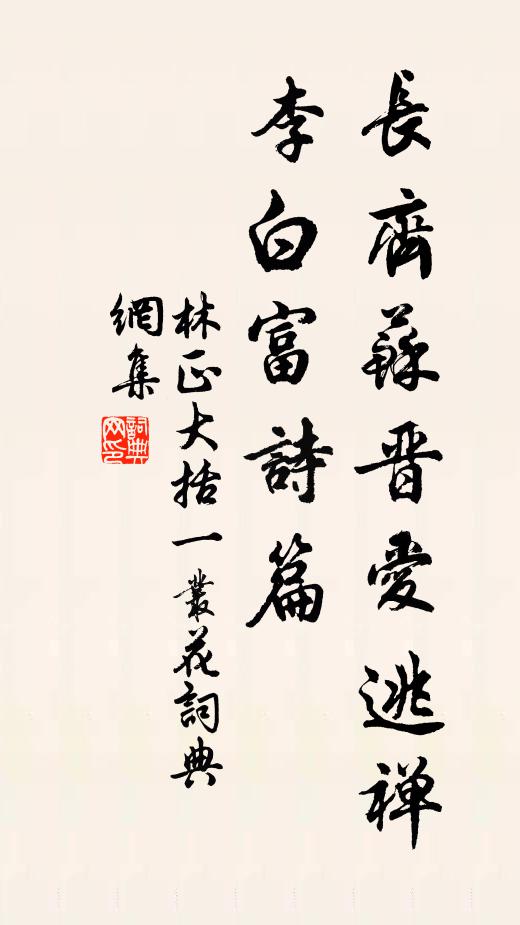 長齊蘇晋愛逃禅
李白富詩篇
林正大括一叢花詞典
網集
詞典
网印